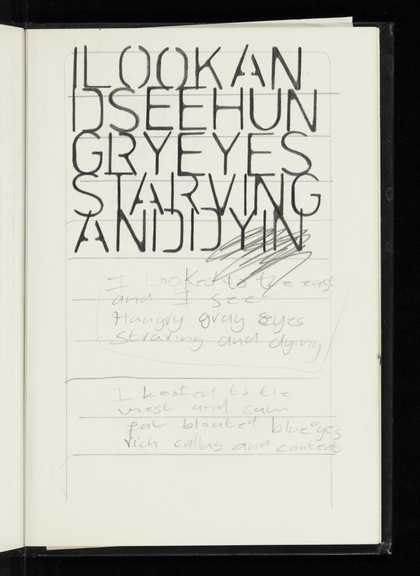 ILOOKAN
DSEEHUN
GRYEYES
STARVING
ANDDYIN
I Looked to the east
and I see
Hungry gray eyes
Straving and dying
I looked to the
west and saw
fat bloated blue eyes
rich and content